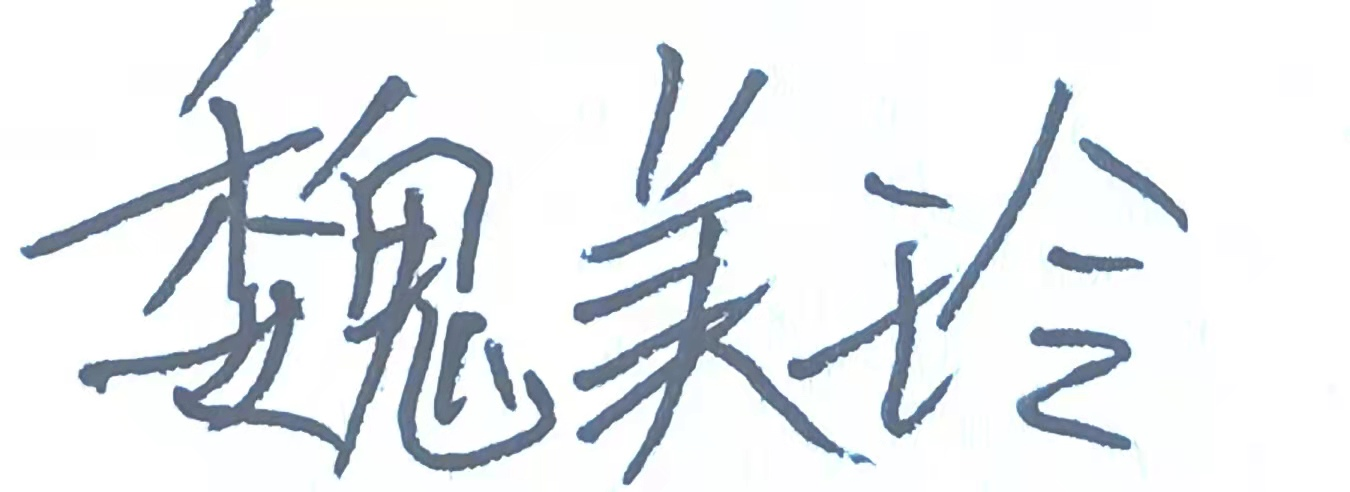 魏美玲